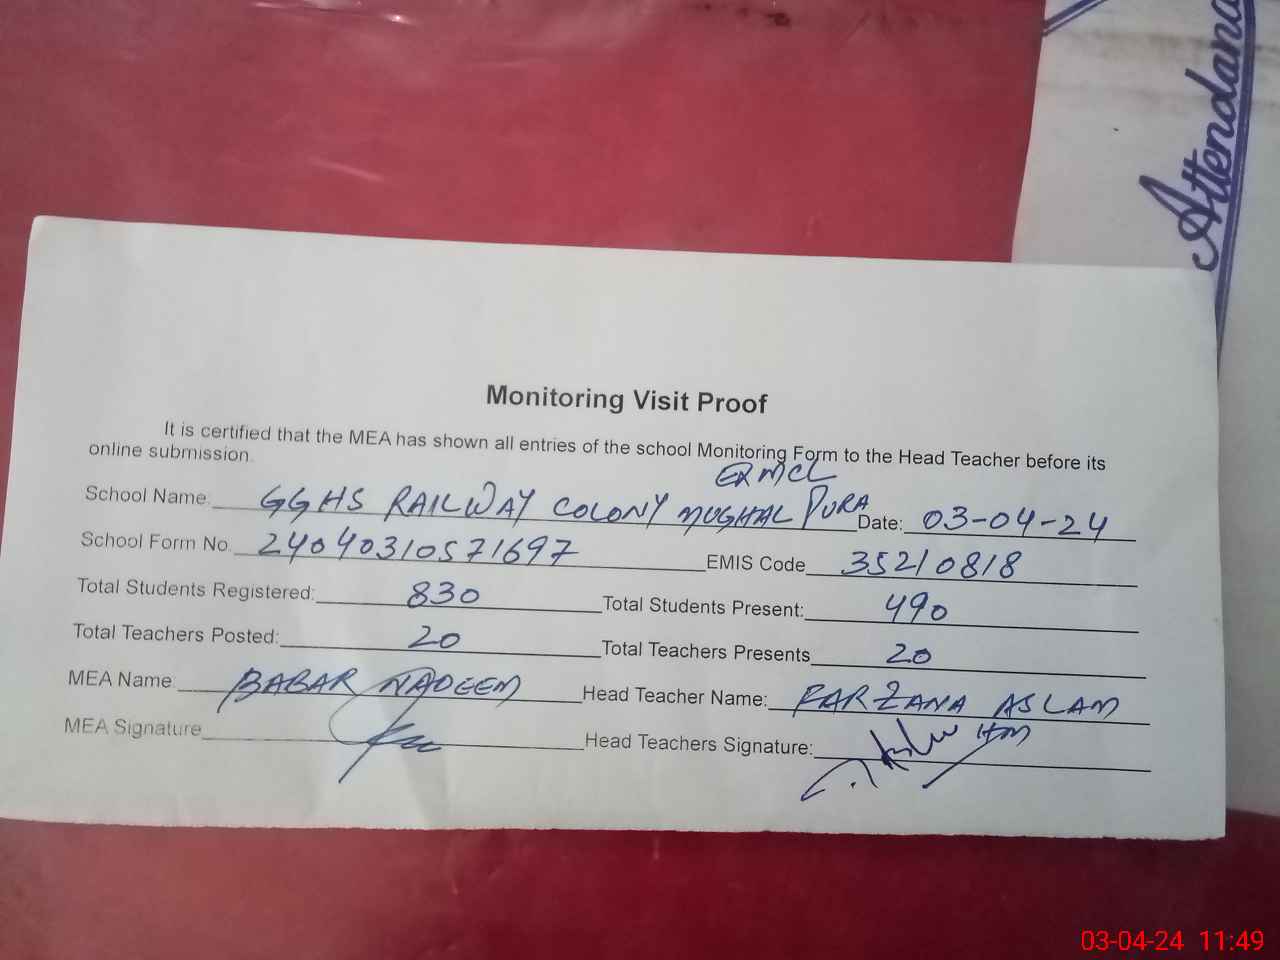 Attendanc
Monitoring Visit Proof
It is certified that the MEA has shown all entries of the school Monitoring Form to the Head Teacher before its
online submission.
School Name: GGHS RAILWAY COLONY MUGHAL PURA Date: 03-04-24
School Form No. 24040310571697 EMIS Code 35210818
Total Students Registered: 830 Total Students Present: 490
Total Teachers Posted: 20 Total Teachers Presents 20
MEA Name: BABAR NADEEM Head Teacher Name: FARZANA ASLAM
MEA Signature Head Teachers Signature: HM
03-04-24 11:49